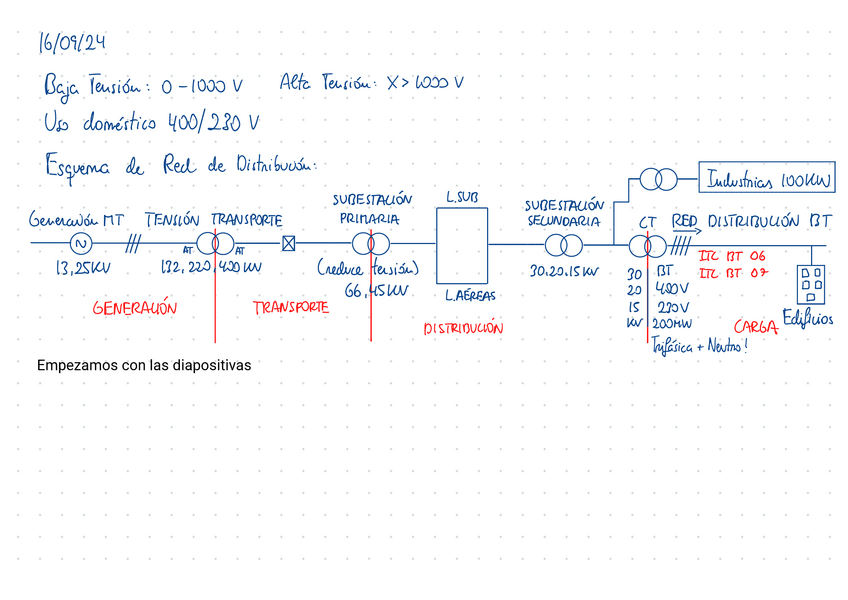 16/09/24
Baja Tensión: 0-1000 V Alta Tensión: X > 1000 V
Uso doméstico 400/230 V
Esquema de Red de Distribución:
Industrias 100KW
SUBESTACIÓN PRIMARIA
L.SUB
SUBESTACIÓN SECUNDARIA
Generación MT
TENSIÓN TRANSPORTE
CT
RED DISTRIBUCIÓN BT
N
AT
AT
ITC BT 06
ITC BT 07
13,25KV
132, 220, 400 KV
(reduce tensión)
66, 45 KV
L.AÉREAS
30.20.15 KV
30
20
15
KV
BT
400V
230V
Trifásica + Neutro!
GENERACIÓN
TRANSPORTE
DISTRIBUCIÓN
CARGA
Edificios
Empezamos con las diapositivas